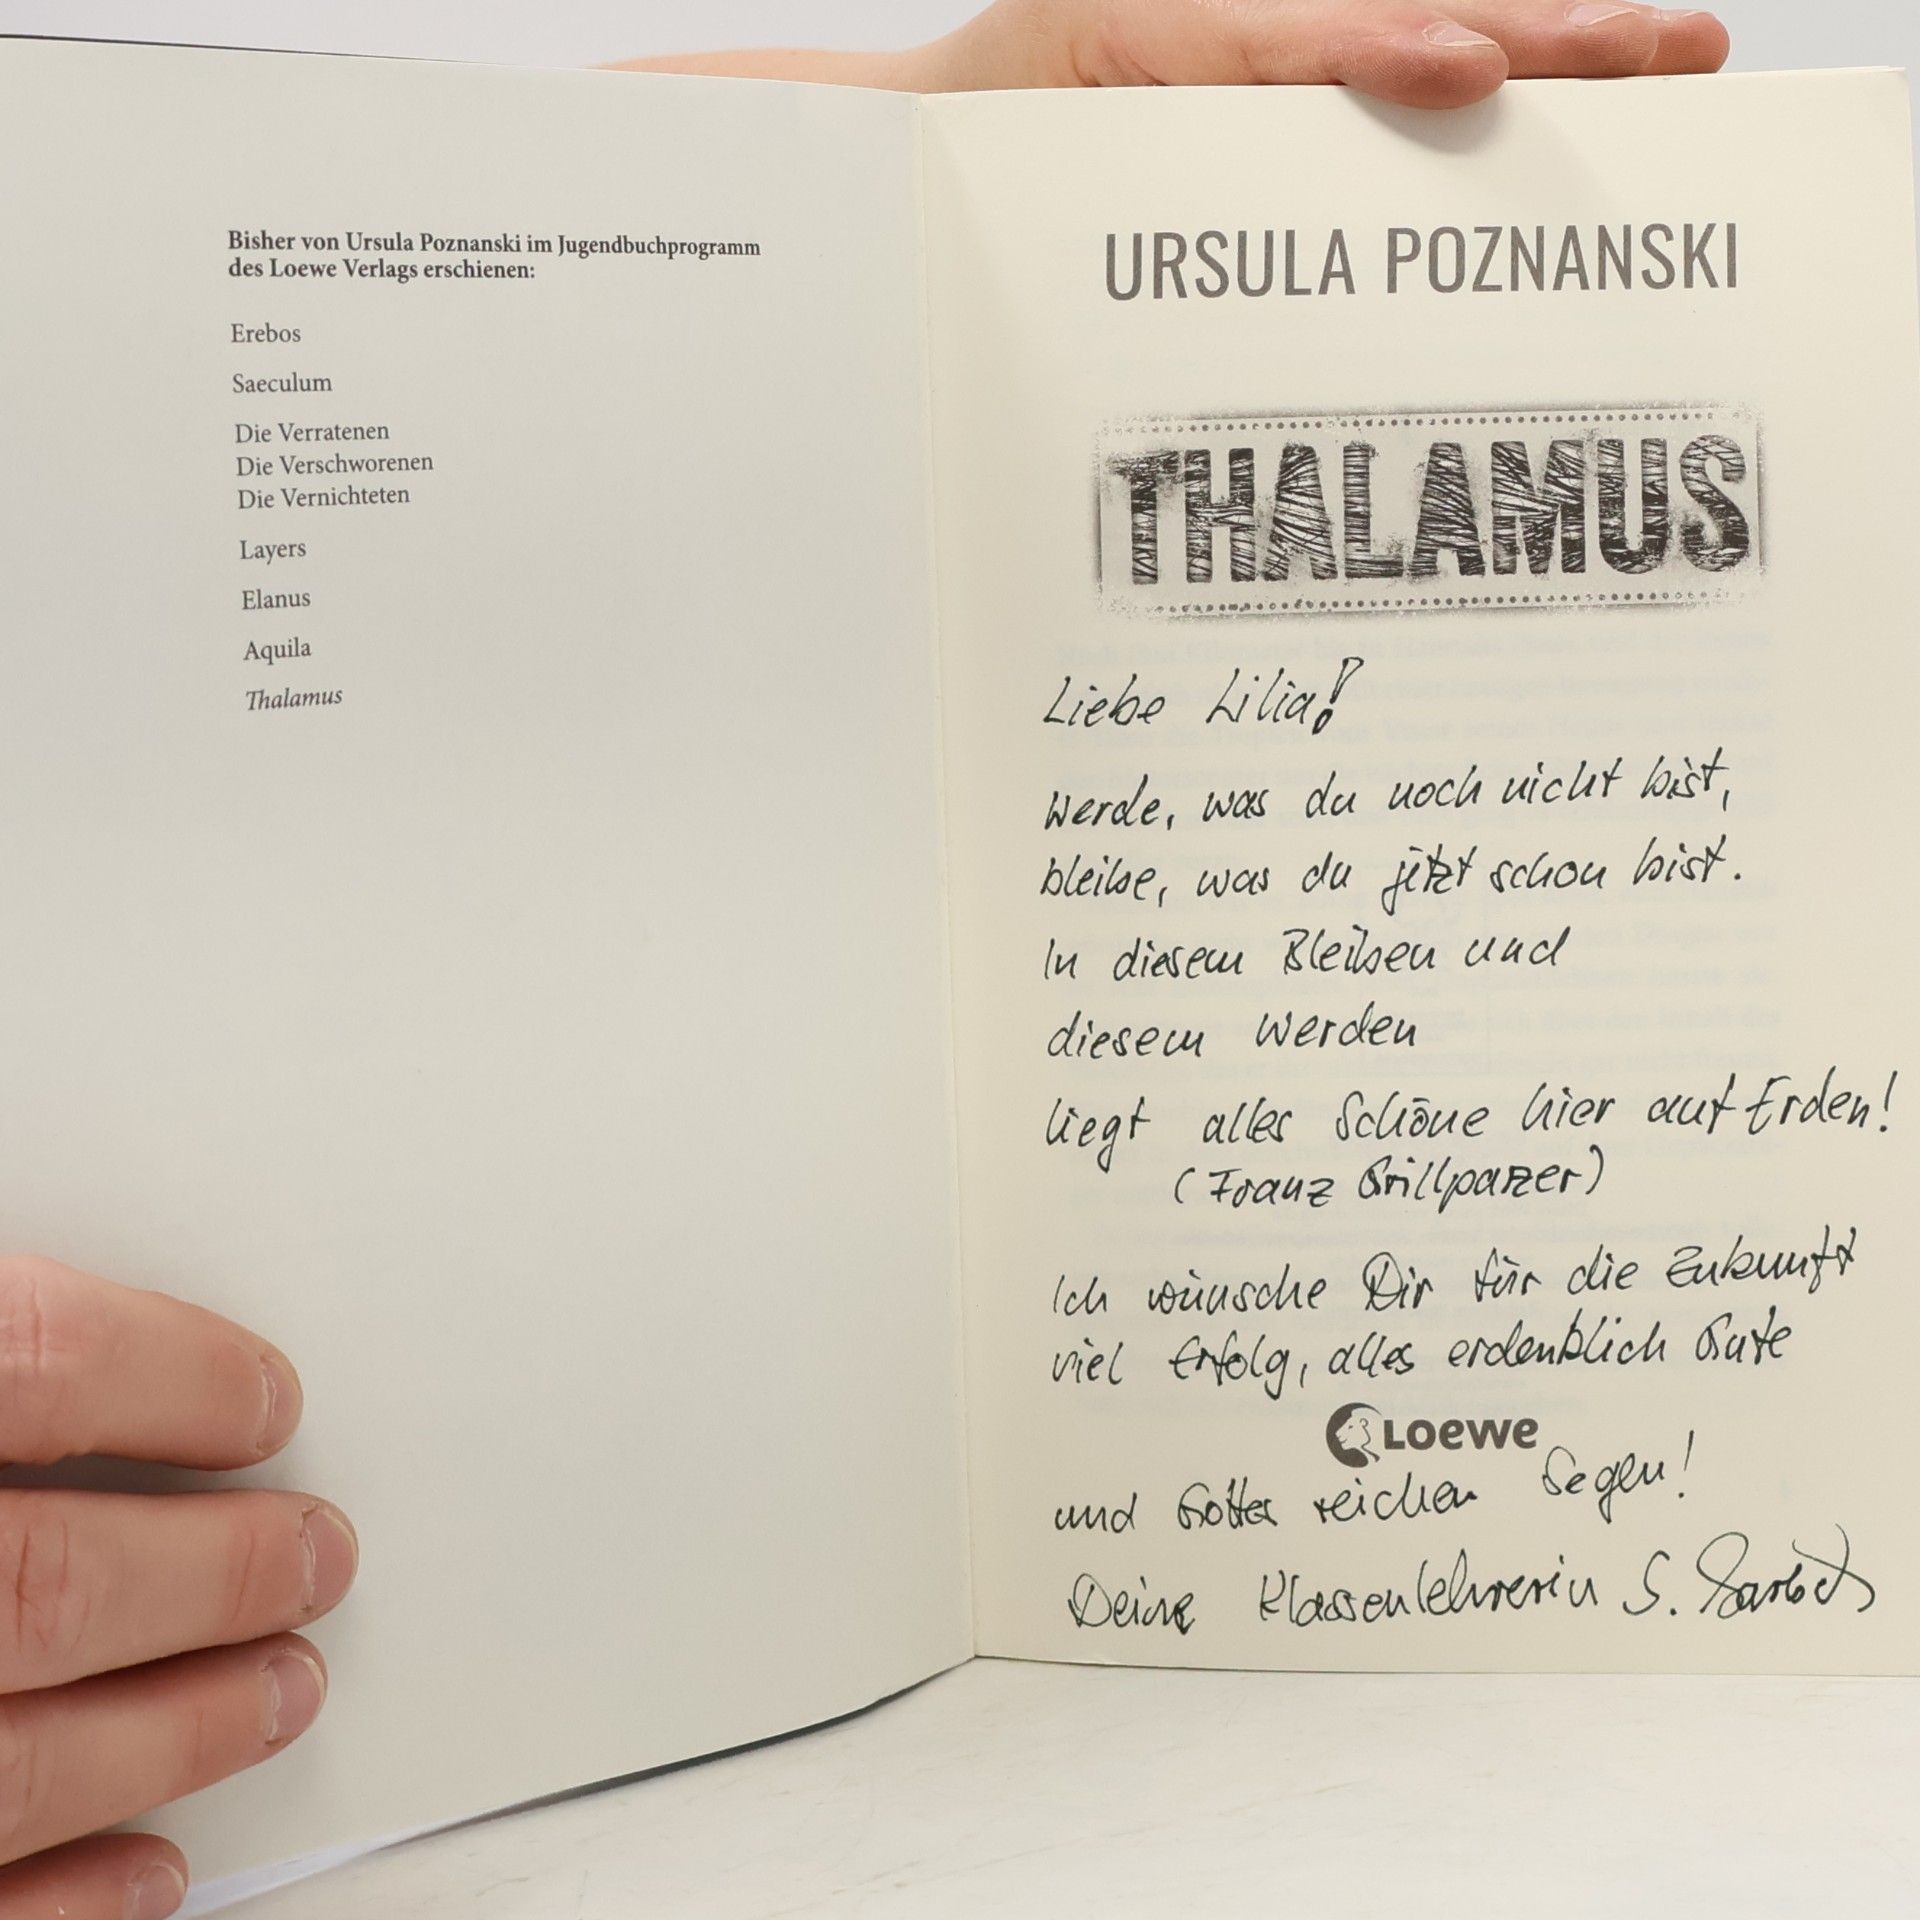 Bisher von Ursula Poznanski im Jugendbuchprogramm
des Loewe Verlags erschienen:
Erebos
Saeculum
Die Verratenen
Die Verschworenen
Die Vernichteten
Layers
Elanus
Aquila
Thalamus
URSULA POZNANSKI
THALAMUS
Liebe Lilia!
Werde, was du noch nicht bist,
bleibe, was du jetzt schon bist.
In diesem Bleiben und
diesem Werden
liegt alles Schöne hier auf Erden!
(Franz Grillparzer)
Ich wünsche Dir für die Zukunft
viel Erfolg, alles erdenklich Gute
Loewe
und Gottes reichen Segen!
Deine Klassenlehrerin S.